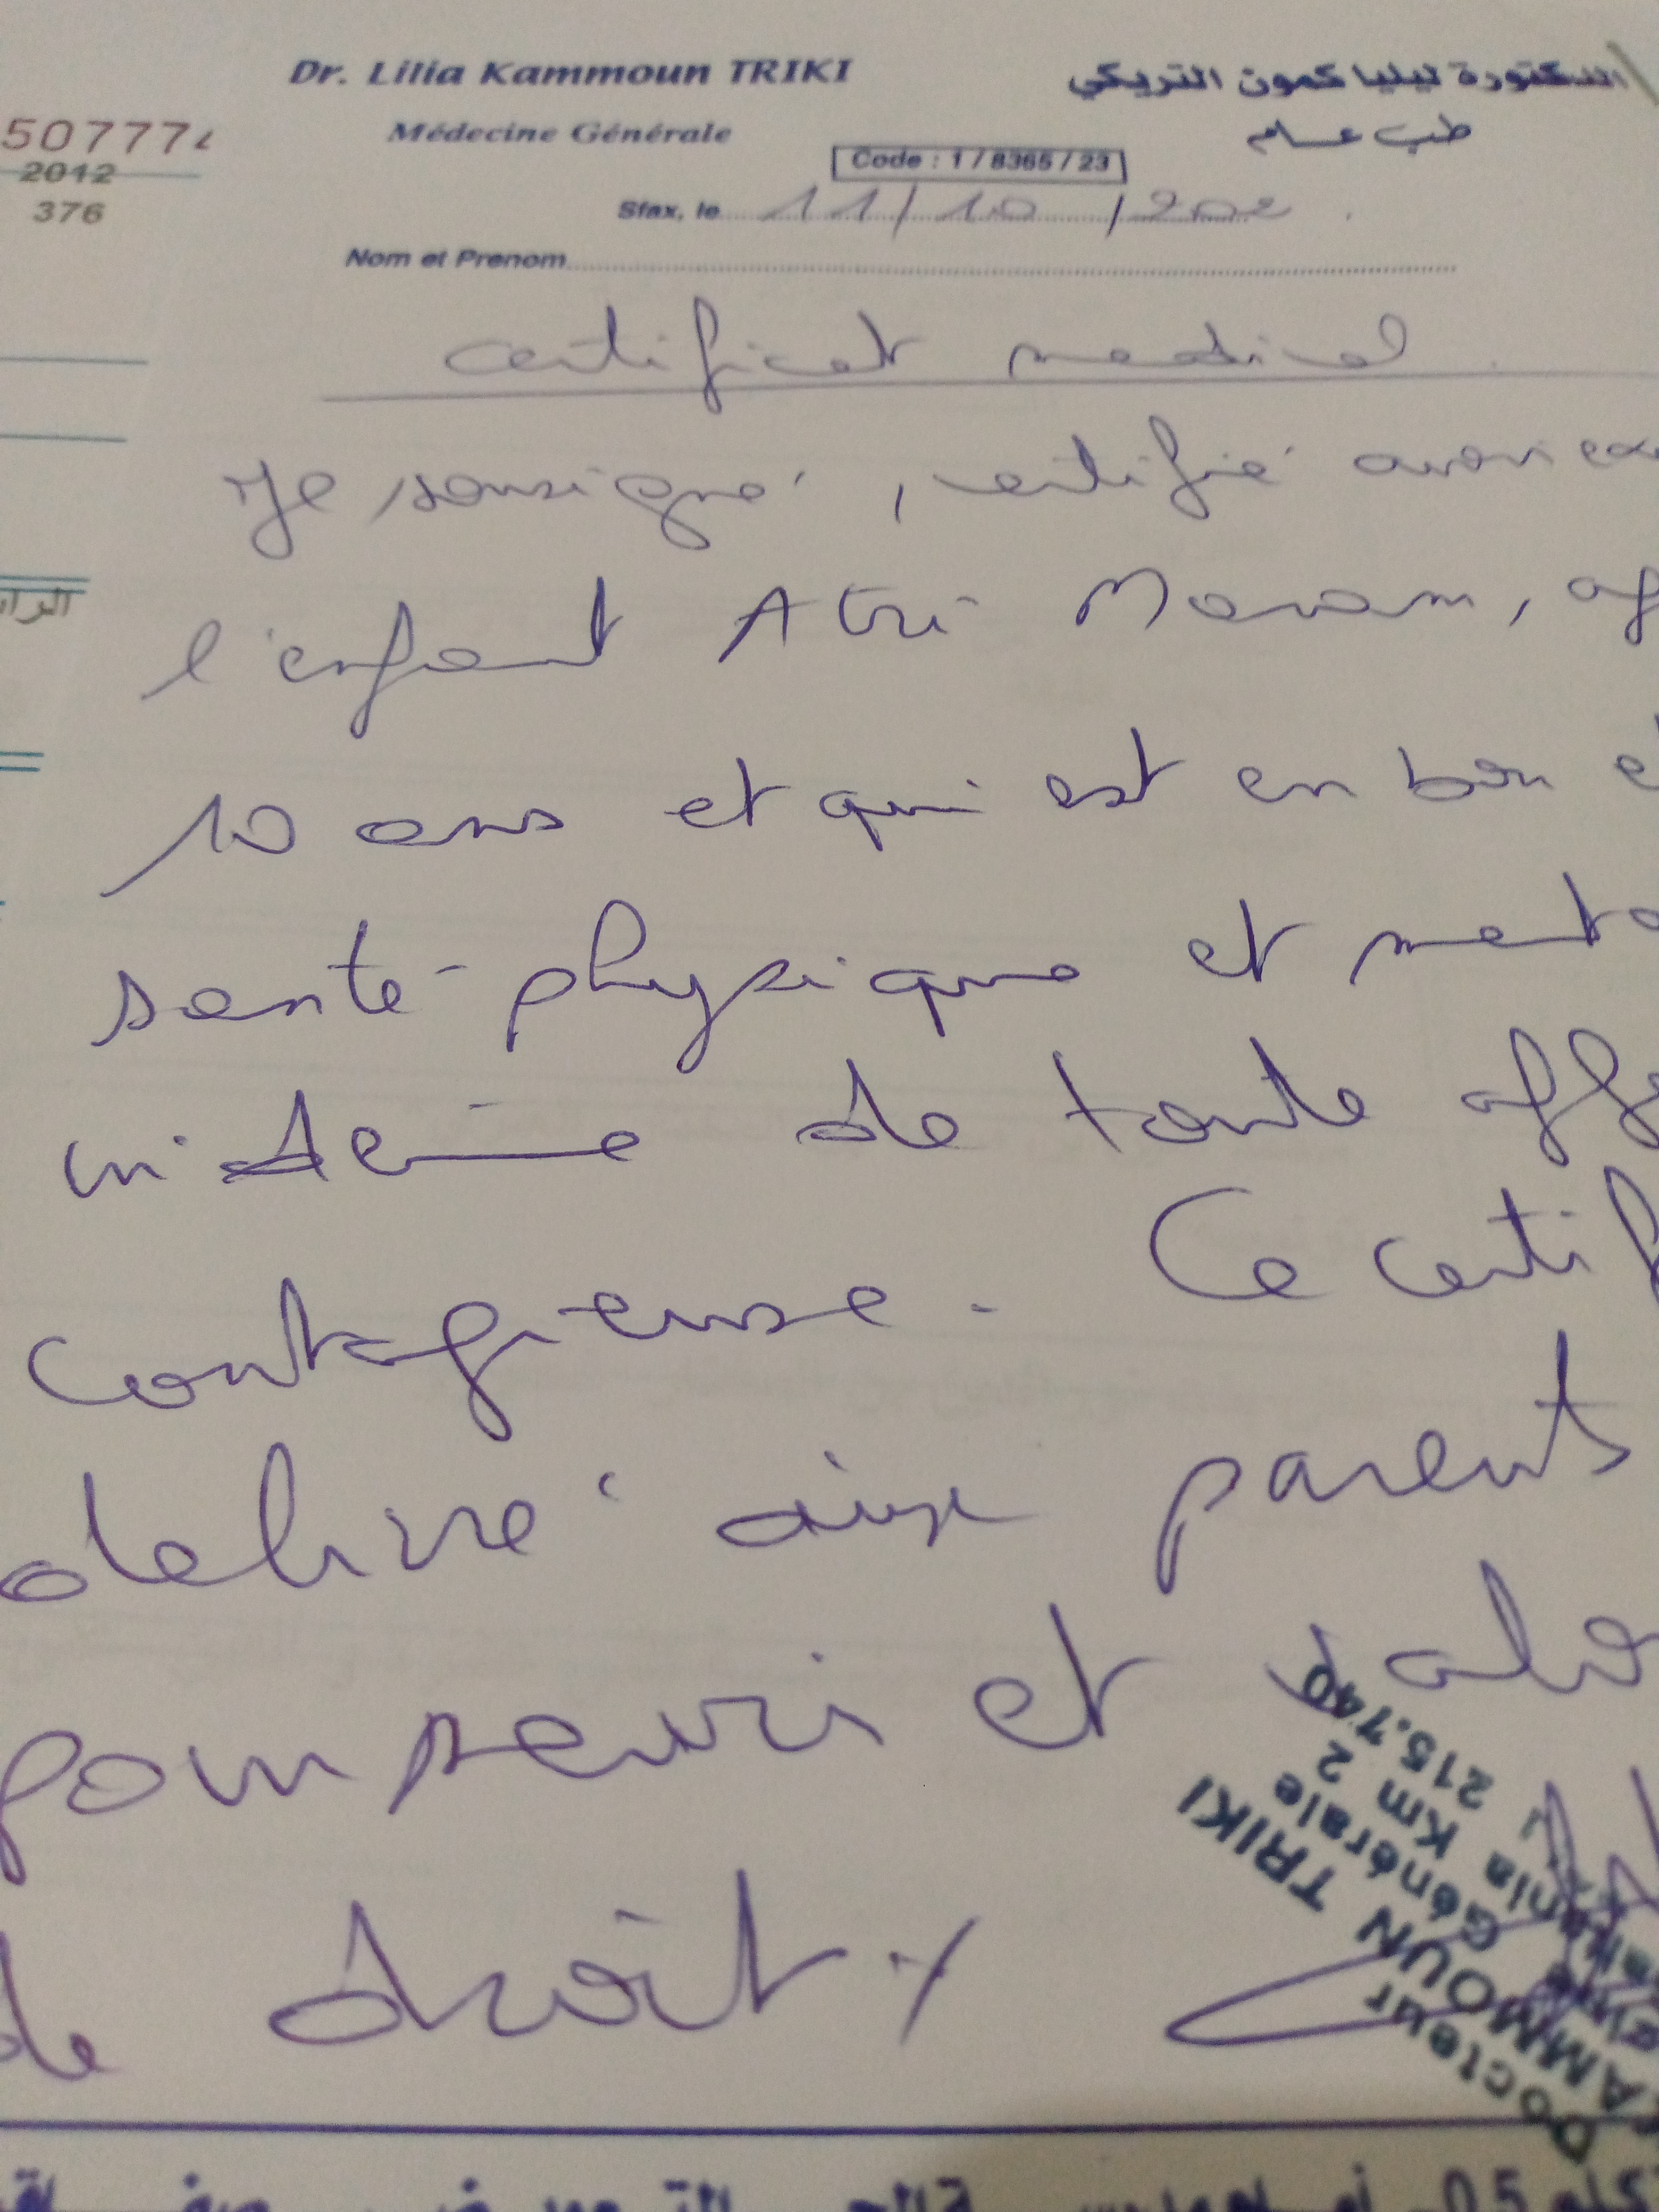 Dr. Lilia Kammoun TRIKI
الدكتورة ليليا كمون التريكي
Médecine Générale
طب عام
507774
2012
376
Code : 1 / 8365 / 23
Sfax, le 11/10/202
Nom et Prenom
certificat medical.
Je sousigné, certifié avoir exa
l'enfant Atri Maram, ag
10 ans et qui est en bon e
santé physique et menta
indemne de toute affe
contagieuse. Ce certif
delivré aux parents
pour servir et valo
de droit
Docteur
KAMMOUN TRIKI
Générale
Km 2
215.740